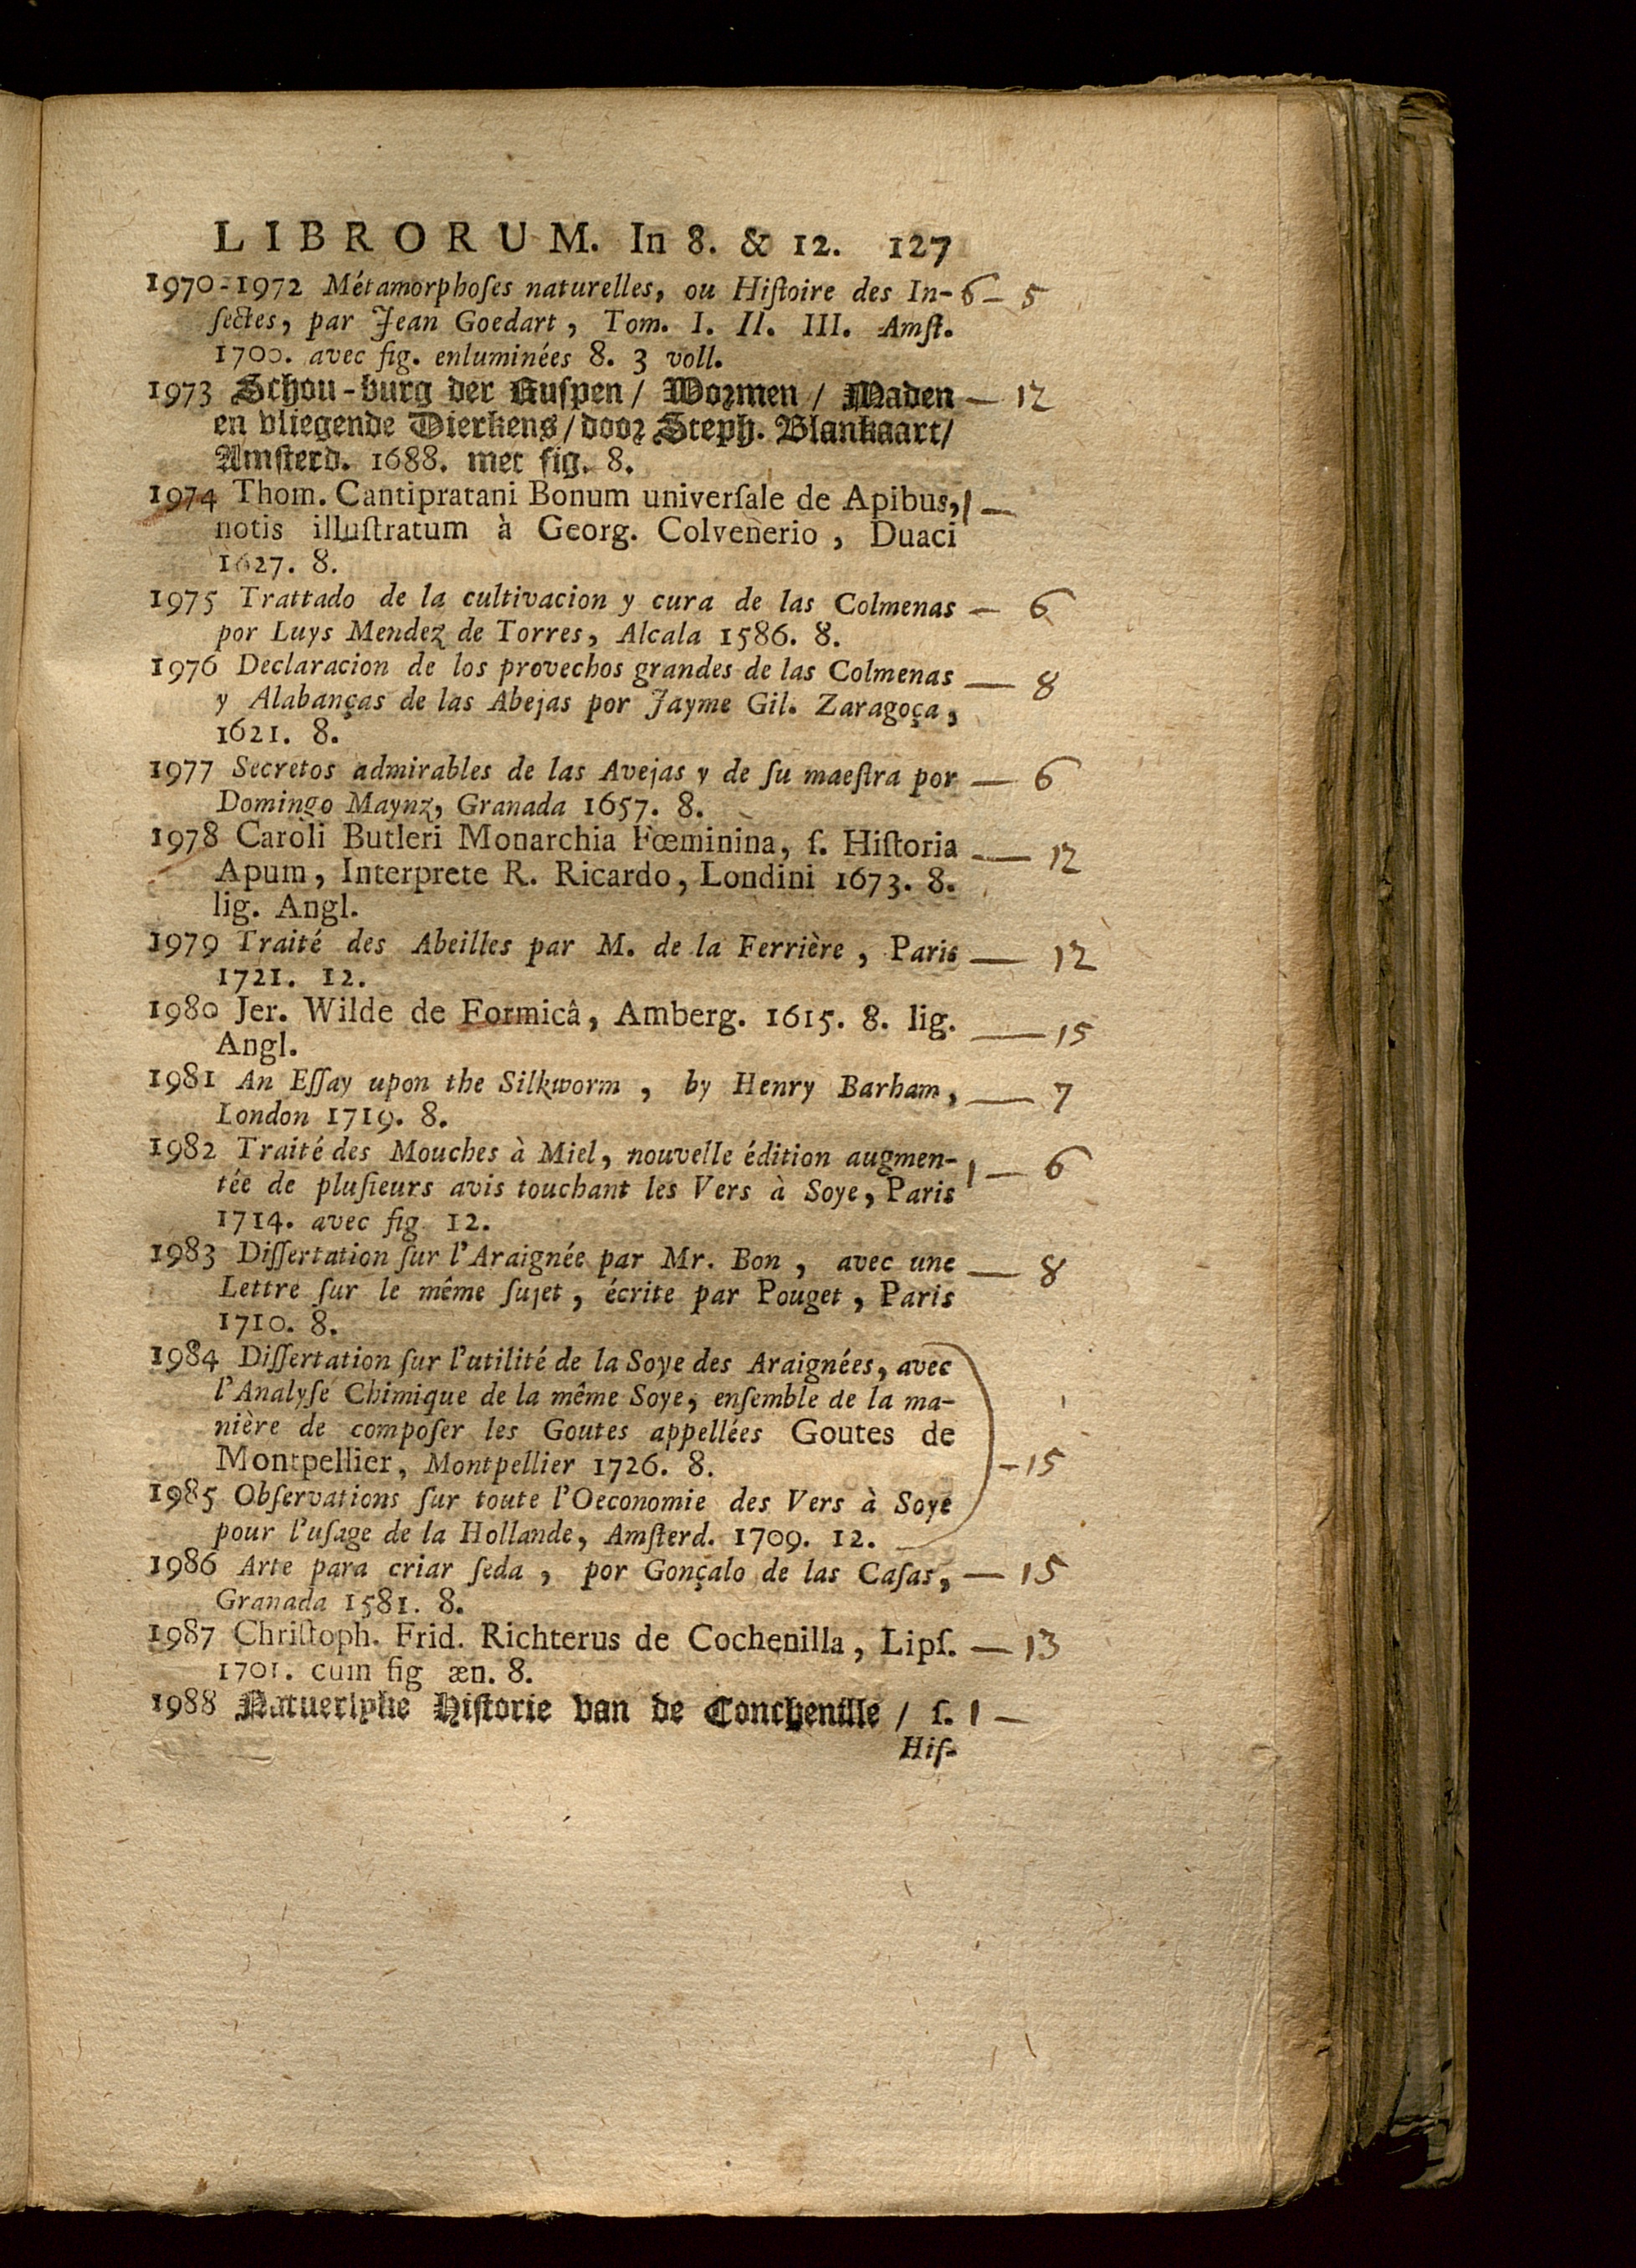 LIBRORUM. In 8. & 12. 127
1970-1972 Métamorphoſes naturelles, ou Hiſtoire des In- 6 — 5
ſectes, par Jean Goedart, Tom. I. II. III. Amſt.
1700. avec fig. enluminées 8. 3 voll.
1973 Schou-burg der Ruſpen / Wormen / Maden — 12
en vliegende Dierkens / door Steph. Blankaart /
Amſterd. 1688. met fig. 8.
1974 Thom. Cantipratani Bonum univerſale de Apibus, 1 —
notis illuſtratum à Georg. Colvenerio, Duaci
1627. 8.
1975 Trattado de la cultivacion y cura de las Colmenas — 6
por Luys Mendez de Torres, Alcala 1586. 8.
1976 Declaracion de los provechos grandes de las Colmenas — 8
y Alabanças de las Abejas por Jayme Gil. Zaragoça,
1621. 8.
1977 Secretos admirables de las Avejas y de ſu maeſtra por — 6
Domingo Maynz, Granada 1657. 8.
1978 Caroli Butleri Monarchia Fœminina, ſ. Hiſtoria — 12
Apum, Interprete R. Ricardo, Londini 1673. 8.
lig. Angl.
1979 Traité des Abeilles par M. de la Ferrière, Paris — 12
1721. 12.
1980 Jer. Wilde de Formicâ, Amberg. 1615. 8. lig. — 15
Angl.
1981 An Eſſay upon the Silkworm, by Henry Barham, — 7
London 1719. 8.
1982 Traité des Mouches à Miel, nouvelle édition augmen- 1 — 6
tée de pluſieurs avis touchant les Vers à Soye, Paris
1714. avec fig 12.
1983 Diſſertation ſur l'Araignée par Mr. Bon, avec une — 8
Lettre ſur le même ſujet, écrite par Pouget, Paris
1710. 8.
1984 Diſſertation ſur l'utilité de la Soye des Araignées, avec
l'Analyſe Chimique de la même Soye, enſemble de la ma-
nière de compoſer les Goutes appellées Goutes de
Montpellier, Montpellier 1726. 8. — 15
1985 Obſervations ſur toute l'Oeconomie des Vers à Soye
pour l'uſage de la Hollande, Amſterd. 1709. 12.
1986 Arte para criar ſeda, por Gonçalo de las Caſas, — 15
Granada 1581. 8.
1987 Chriſtoph. Frid. Richterus de Cochenilla, Lipſ. — 13
1701. cum fig æn. 8.
1988 Natuerlyke Hiſtorie van de Conchenille / ſ. 1 —
Hiſ-